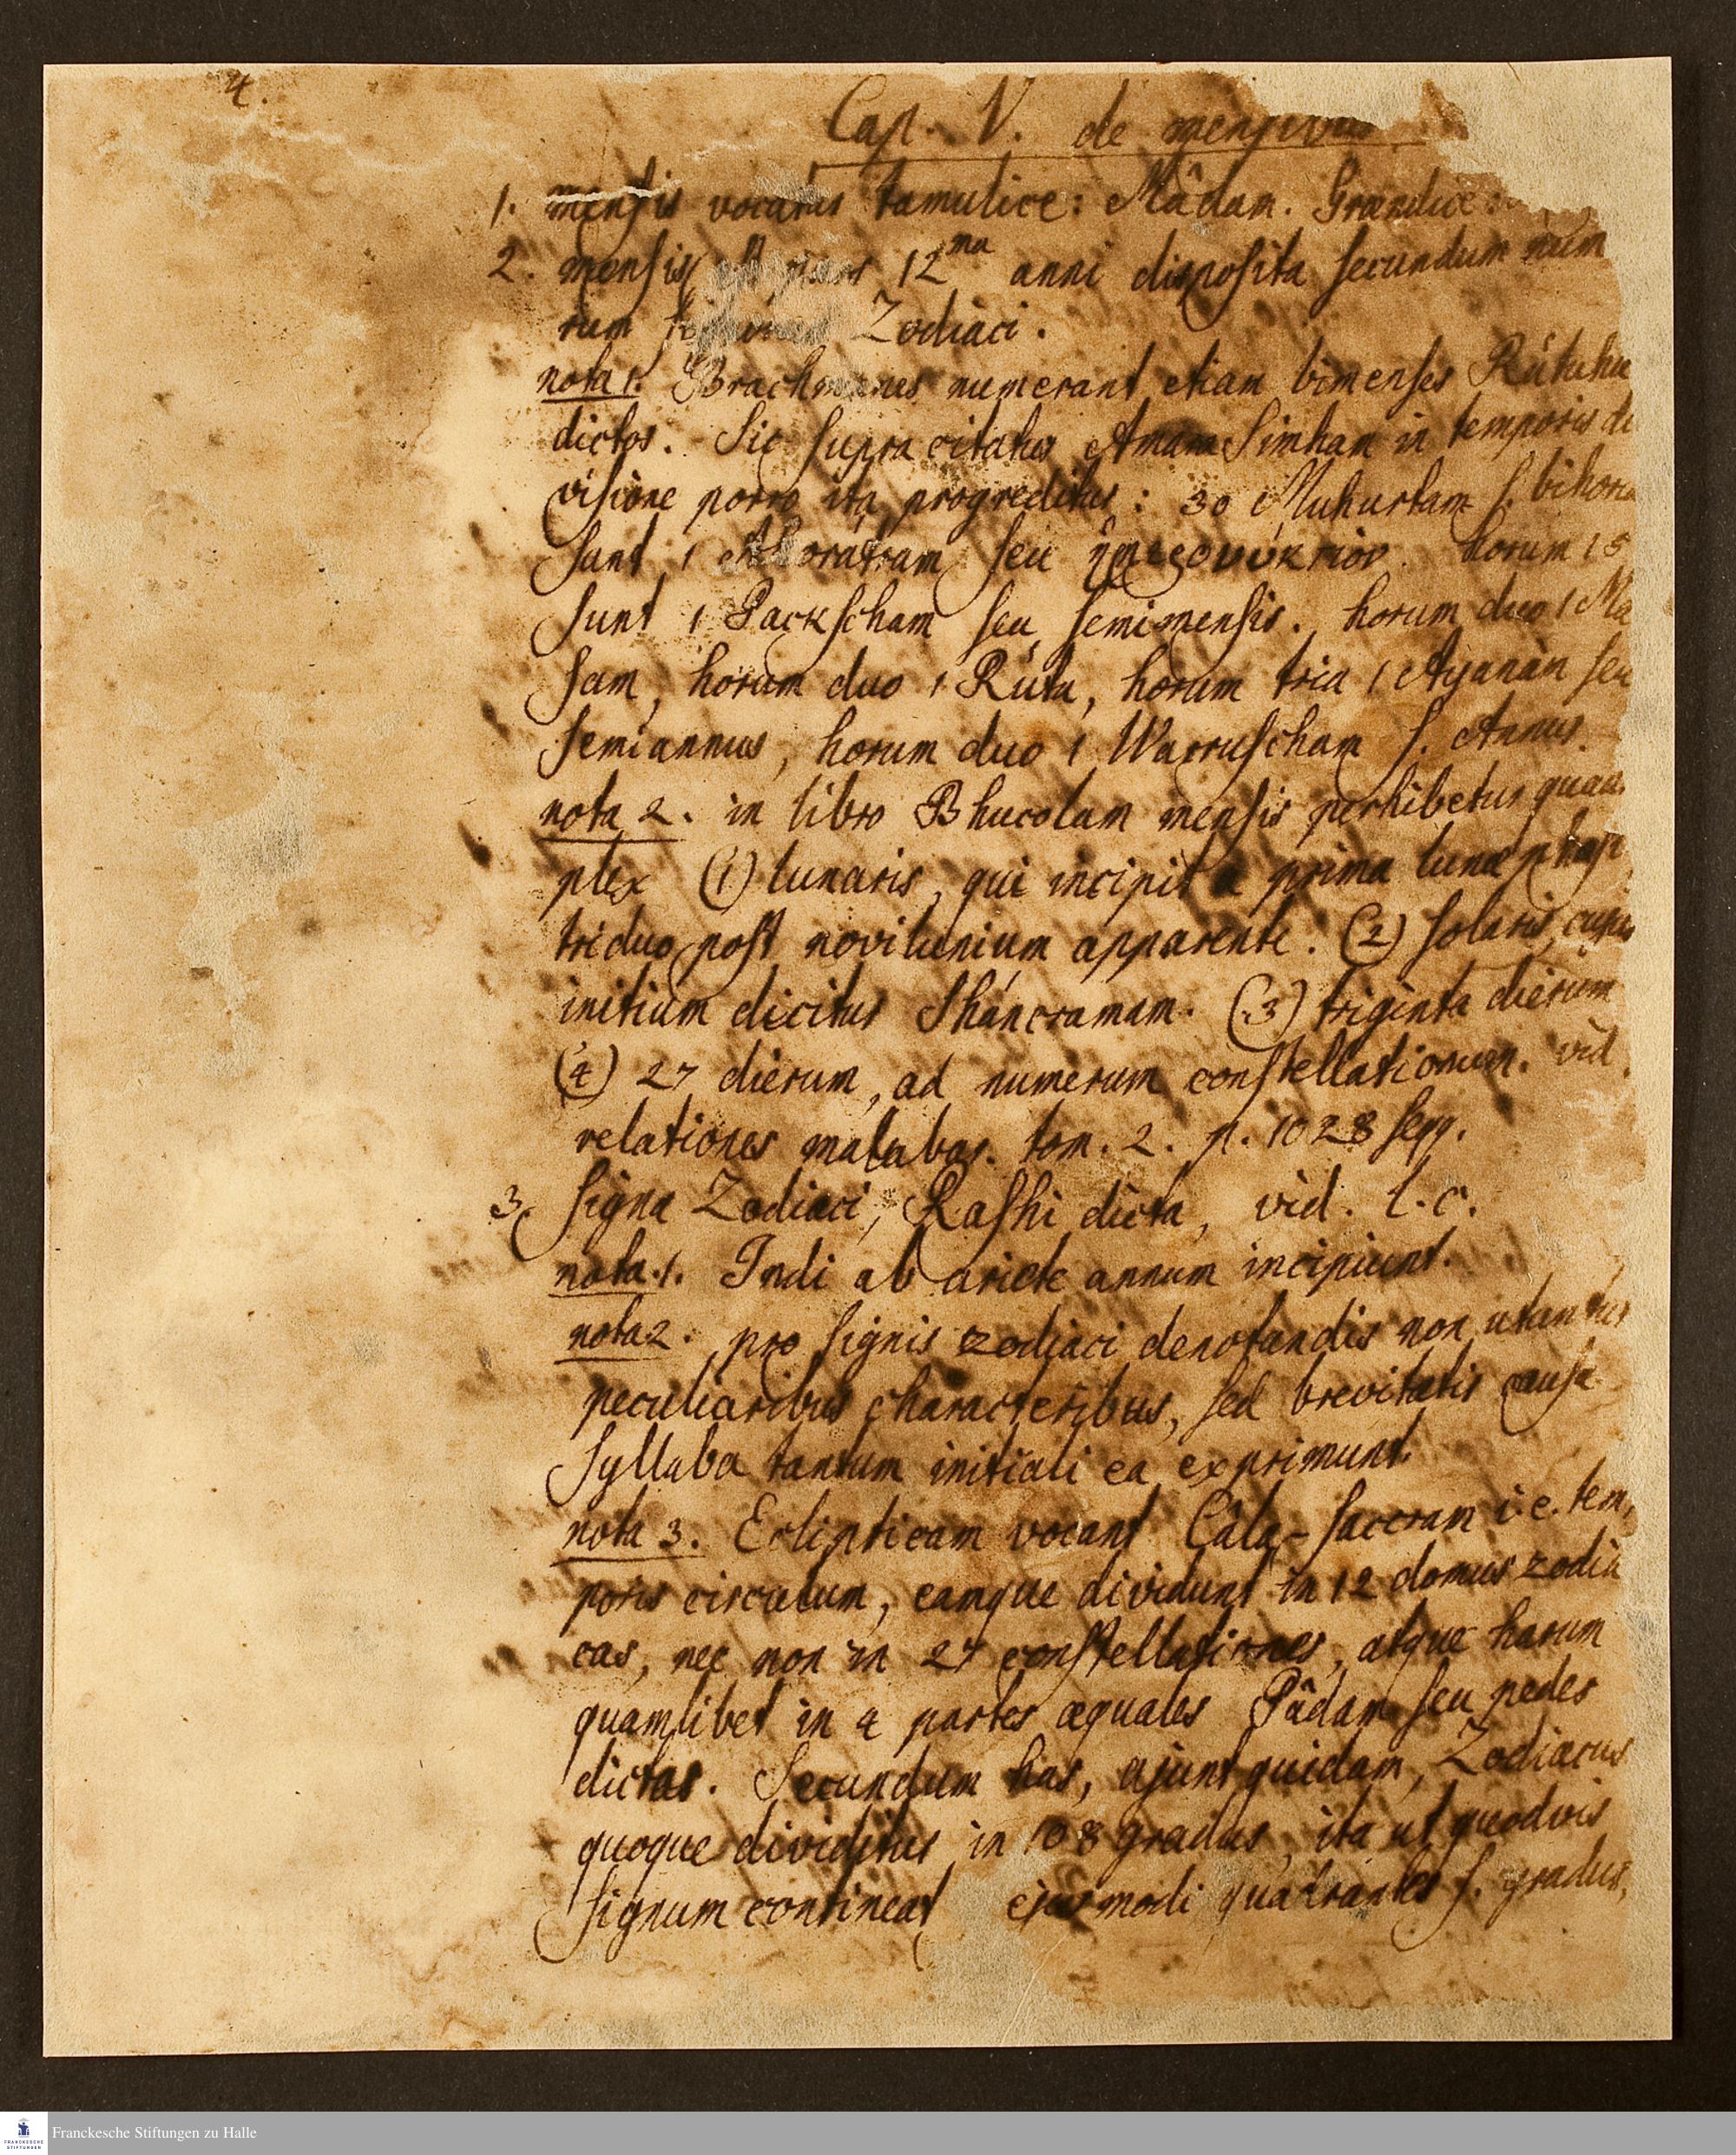 4.
Cap. V. de mensibus
1. mensis vocatur tamulice: Mâdam. Grandice:
2. mensis est pars 12ma anni disposita secundum num
rum Zodiaci.
nota 1. Brachmanes numerant etiam bimenses Rútuhu
dictos. Sic supra citatus Amara Simham in temporis di
visione porro ita progreditur: 30 Muhurtam s. bihora
sunt 1 Ahoratram seu ἡμερονύκτιον. horum 15
sunt 1 Packscham seu semimensis. horum duo 1 Ma
sam, horum duo 1 Rútu, horum tria 1 Ayanàn seu
semiannus, horum duo 1 Warruscham s. Annus.
nota 2. in libro Bhucolam mensis perhibetur quadu
plex (1) lunaris, qui incipit a prima lunæ phasi
triduo post novilunium apparente. (2) solaris, cujus
initium dicitur Shancramam. (3) triginta dierum
(4) 27 dierum, ad numerum constellationum. vid.
relationes malabar. tom. 2. p. 1028 seqq.
3. signa Zodiaci, Rashi dicta, vid. l. c.
nota. 1. Indi ab ariete annum incipiunt.
nota 2. pro signis zodiaci denotandis non utuntur
peculiaribus characteribus, sed brevitatis causa
syllaba tantum initiali ea exprimunt.
nota 3. Eclipticam vocant Câla-saccram i. e. tem
poris circulum, eamque dividunt in 12 domus zodia
cas, nec non in 27 constellationes, atque harum
quamlibet in 4 partes æquales Pâdam seu pedes
dictas. Secundum has, ajunt quidam, Zodiacus
quoque dividitur in 108 gradus, ita ut quodvis
signum contineat ejusmodi quadrantes s. gradus,
Franckesche Stiftungen zu Halle
FRANCKESCHE
STIFTUNGEN